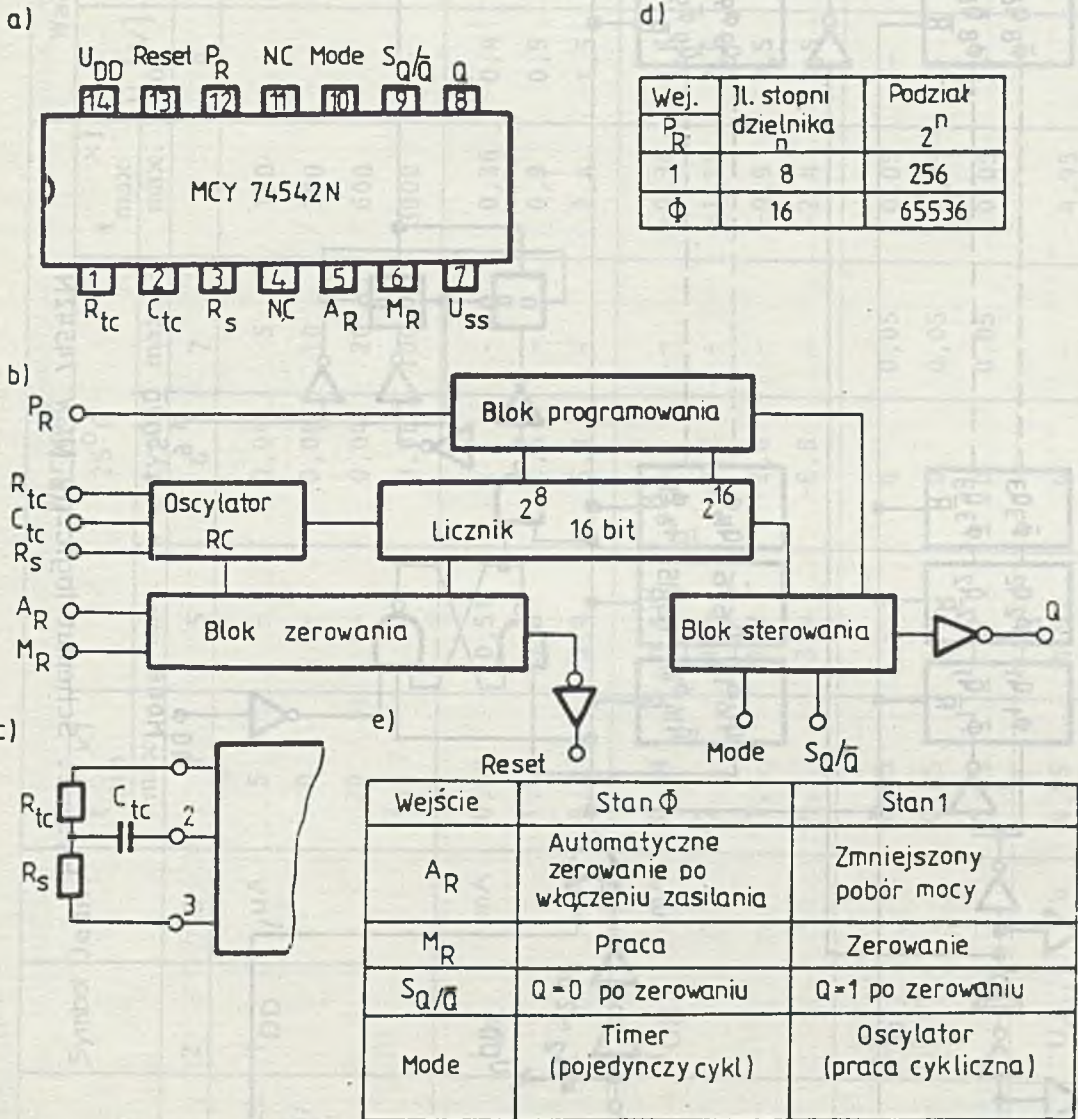 a)
U_DD Reset P_R NC Mode S_Q/Q̅ Q
14 13 12 11 10 9 8
MCY 74542N
1 2 3 4 5 6 7
R_tc C_tc R_s NC A_R M_R U_ss
d)
Wej. P_R Jl. stopni dzielnika n Podział 2^n
1 8 256
Φ 16 65536
b)
P_R
Blok programowania
R_tc
C_tc
R_s
Oscylator
RC
2^8 2^16
Licznik 16 bit
A_R
M_R
Blok zerowania
Blok sterowania
Q
Reset
Mode S_Q/Q̅
c)
R_tc C_tc
2
R_s
3
e)
Wejście Stan Φ Stan 1
A_R
Automatyczne
zerowanie po
włączeniu zasilania
Zmniejszony
pobór mocy
M_R Praca Zerowanie
S_Q/Q̅ Q=0 po zerowaniu Q=1 po zerowaniu
Mode
Timer
(pojedynczy cykl)
Oscylator
(praca cykliczna)